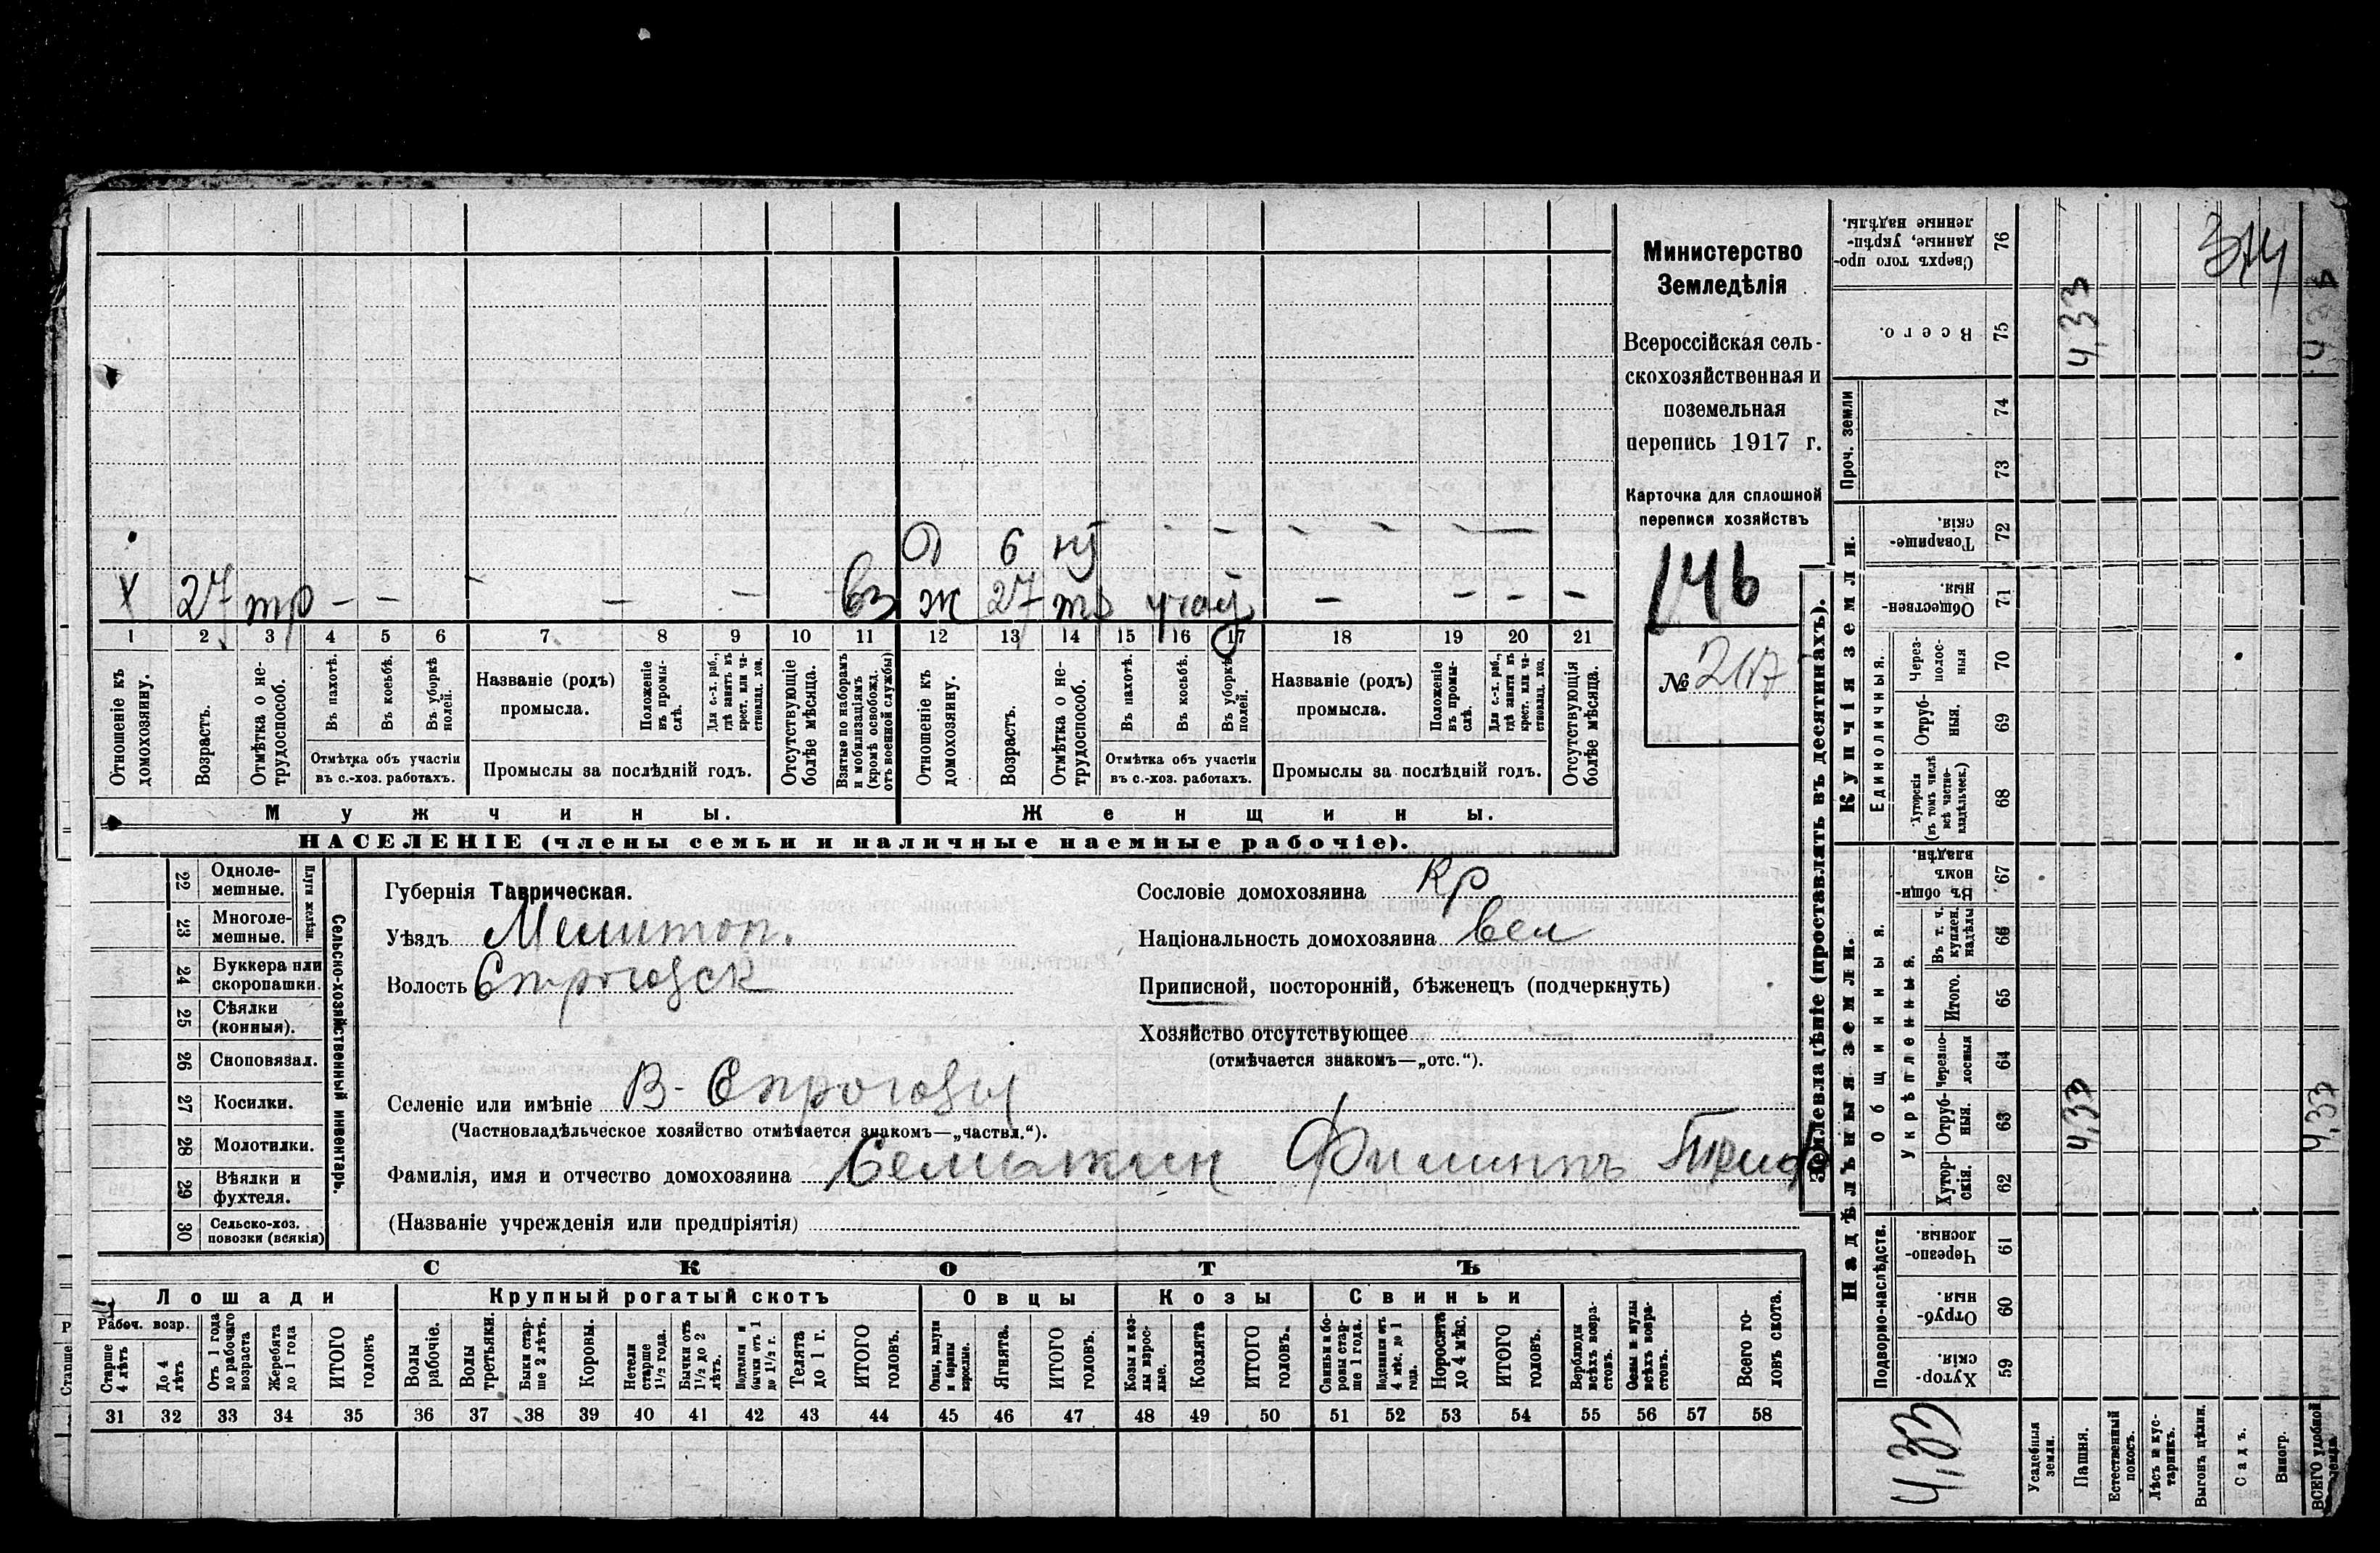 Министерство
Земледѣлія
Всероссійская сель-
скохозяйственная и
поземельная
перепись 1917 г.
Карточка для сплошной
переписи хозяйствъ
146
№
Х 27 тр – – – – – – вз ж 27 – – – –
Д 6 – – – – – –
1 2 3 4 5 6 7 8 9 10 11 12 13 14 15 16 17 18 19 20 21
Отношеніе къ домохозяину.
Возрастъ.
Отмѣтка о не-
трудоспособ.
Въ пахотѣ.
Въ косьбѣ.
Въ уборкѣ полей.
Отмѣтка объ участіи
въ с.-хоз. работахъ.
Названіе (родъ)
промысла.
Положеніе въ промы-
слѣ.
Для с.-х. раб.,
гдѣ занятъ въ
крест. или ча-
стновлад. хоз.
Промыслы за послѣдній годъ.
Отсутствующіе
болѣе мѣсяца.
Взятые по наборамъ
и мобилизаціямъ
(кромѣ освобожд.
отъ военной службы)
Отношеніе къ домохозяину.
Возрастъ.
Отмѣтка о не-
трудоспособ.
Въ пахотѣ.
Въ косьбѣ.
Въ уборкѣ полей.
Отмѣтка объ участіи
въ с.-хоз. работахъ.
Названіе (родъ)
промысла.
Положеніе въ промы-
слѣ.
Для с.-х. раб.,
гдѣ занята въ
крест. или ча-
стновлад. хоз.
Промыслы за послѣдній годъ.
Отсутствующія
болѣе мѣсяца.
Мужчины.
Женщины.
НАСЕЛЕНІЕ (члены семьи и наличные наемные рабочіе).
Сельско-хозяйственный инвентарь.
22 Одноле-
мешные.
23 Многоле-
мешные.
24 Буккера или
скоропашки.
25 Сѣялки
(конныя).
26 Сноповязал.
27 Косилки.
28 Молотилки.
29 Вѣялки и
фухтеля.
30 Сельско-хоз.
повозки (всякія)
Губернія Таврическая.
Уѣздъ Мелитоп.
Волость Строговск
Селеніе или имѣніе В-Строговы
(Частновладѣльческое хозяйство отмѣчается знакомъ—„частвл.“).
Фамилія, имя и отчество домохозяина Семыкин Филиппъ
(Названіе учрежденія или предпріятія)
Сословіе домохозяина Кр
Національность домохозяина Вел
Приписной, посторонній, бѣженецъ (подчеркнуть)
Хозяйство отсутствующее
(отмѣчается знакомъ—„отс.“).
СКОТЪ
Лошади
Крупный рогатый скотъ
Овцы
Козы
Свиньи
Рабоч. возр.
Старше
4 лѣтъ
До 4
лѣтъ
Отъ 1 года
до рабочаго
возраста
Жеребята
до 1 года
ИТОГО
головъ
Волы
рабочіе.
Волы
третьяки.
Быки стар-
ше 2 лѣтъ.
Коровы.
Нетели
старше
1½ года.
Бычки отъ
1½ до 2
лѣтъ.
Подтелки и
бычки отъ 1
до 1½ г.
Телята
до 1 г.
ИТОГО
головъ.
Овцы, валухи
и бараны
взрослые.
Ягнята.
ИТОГО
головъ.
Козы и коз-
лы взрос-
лые.
Козлята
ИТОГО
головъ.
Свиньи и бо-
ровы стар-
ше 1 года.
Подсвинки отъ
4 мѣс. до 1
года.
Поросята
до 4 мѣс.
ИТОГО
головъ.
Верблюды
всѣхъ возра-
стовъ.
Ослы и мулы
всѣхъ возра-
стовъ.
Всего го-
ловъ скота.
31 32 33 34 35 36 37 38 39 40 41 42 43 44 45 46 47 48 49 50 51 52 53 54 55 56 57 58
Землевладѣніе (проставлять въ десятинахъ).
Купчія земли.
Надѣльныя земли.
Проч. земли
Единоличныя.
Общинныя.
Укрѣпленныя.
Подворно-наслѣдств.
Сверхъ того про-
данные, укрѣп-
ленные надѣлы.
76
Всего.
75
74
73
Товарище-
скія.
72
Обществен-
ныя
71
Через-
полос-
ныя
70
Отруб-
ныя.
69
Хуторскія
(въ томъ числѣ
всѣ частно-
владѣльческ.)
68
Въ общин-
номъ
владѣн.
67
Въ т. ч.
куплен.
надѣлы
66
Итого.
65
Черезпо-
лосныя
64
Отруб-
ныя.
63
Хутор-
скія.
62
Черезпо-
лосныя.
61
Отруб-
ныя.
60
Хутор-
скія.
59
Усадебныя
земли.
Пашня.
Естественный
покосъ.
Лѣсъ и кус-
тарникъ.
Выгонъ, цѣлин.
Садъ.
Виногр.
ВСЕГО удобной
земли.
4,33
4,33
4,33
4,33